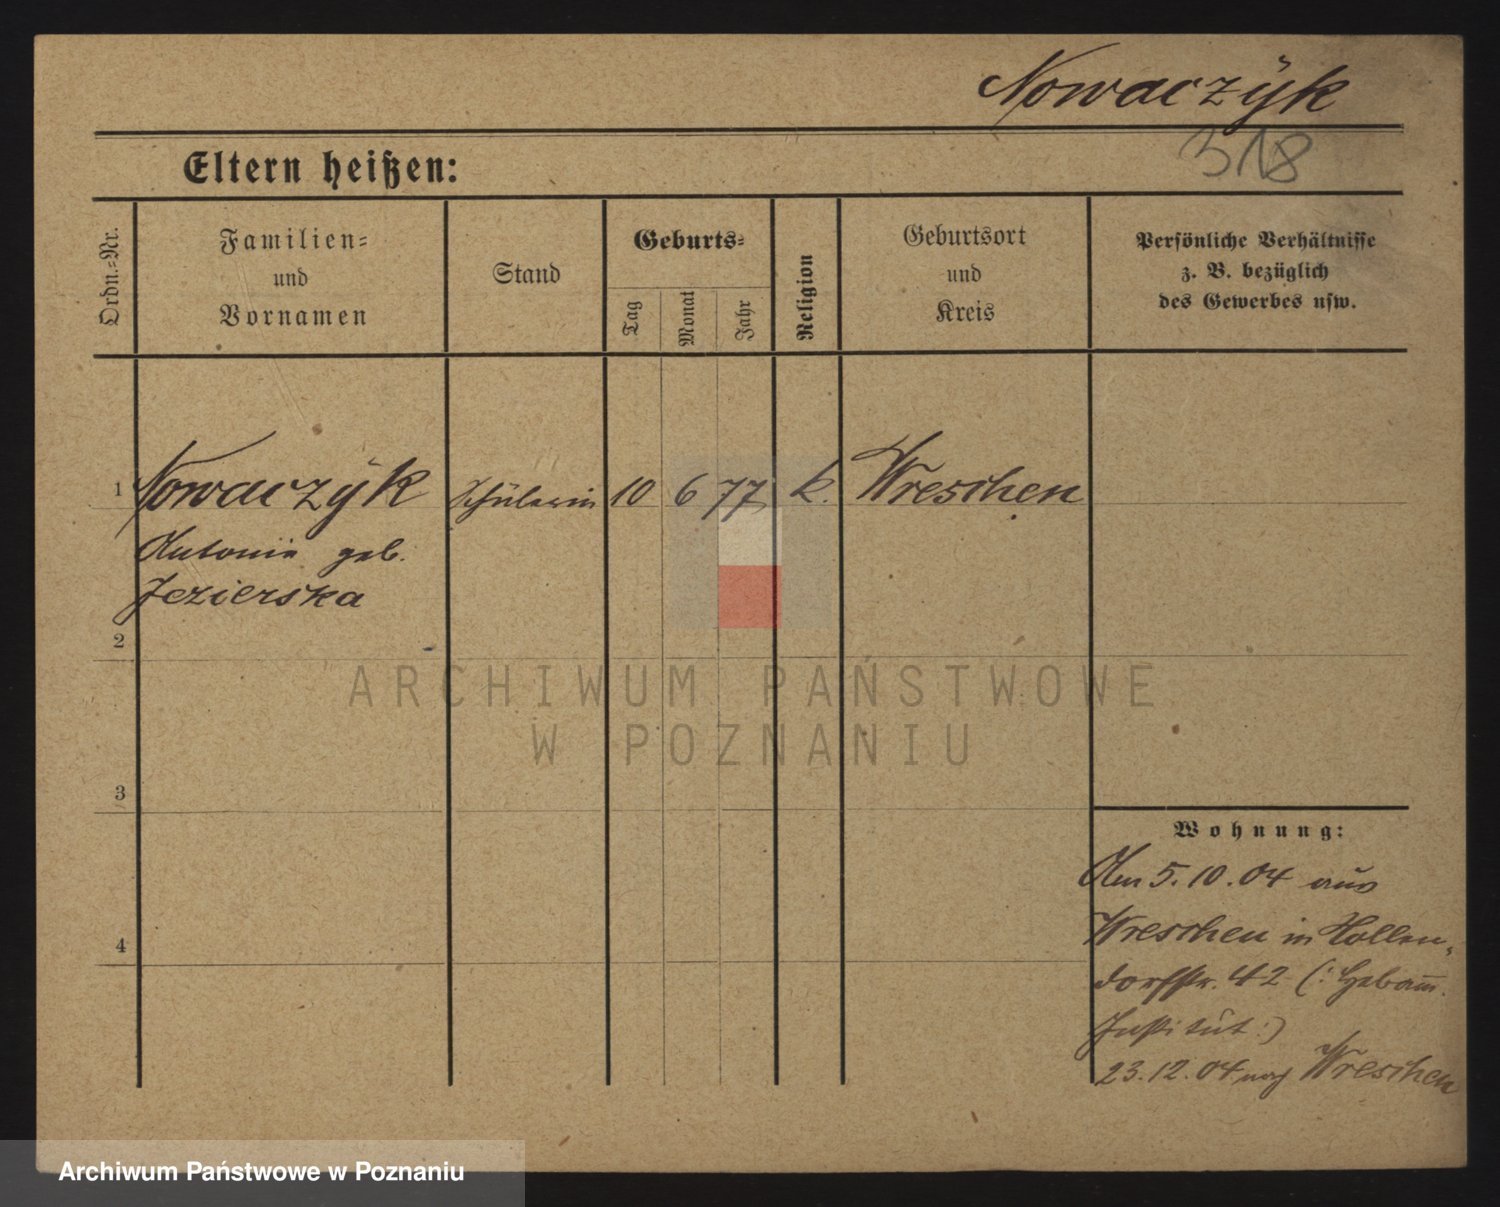 Nowaczÿk
318
Eltern heißen:
Ordn.-Nr.
Familien-
und
Vornamen
Stand
Geburts-
Tag
Monat
Jahr
Religion
Geburtsort
und
Kreis
Persönliche Verhältnisse
z. B. bezüglich
des Gewerbes usw.
1 Nowaczÿk Schülerin 10 6 77 k. Wreschen
Antonie geb.
Jezierska
2
3
4
Wohnung:
Am 5.10.04 aus
Wreschen in Hollen-
dorfstr. 42 (: Hebam.
Institut :)
23.12.04 nach Wreschen
ARCHIWUM PAŃSTWOWE
W POZNANIU
Archiwum Państwowe w Poznaniu